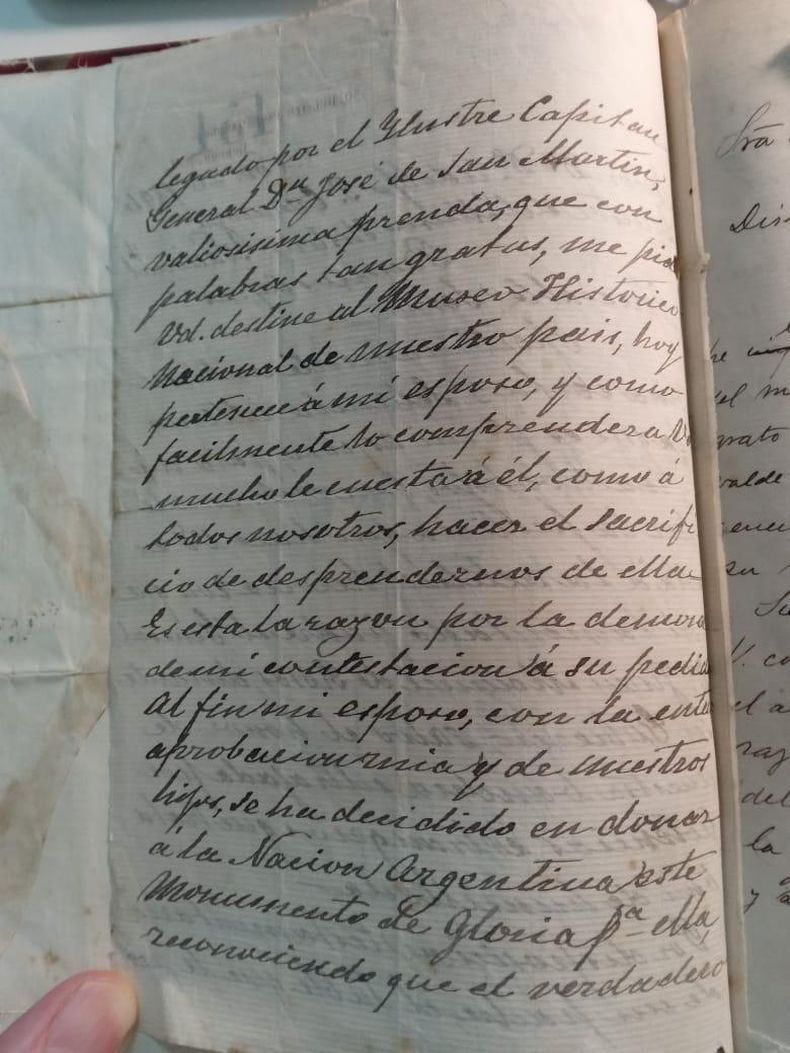 legado por el Ylustre Capitan
General Dn José de San Martin,
valiosisima prenda, que con
palabras tan gratas, me pide
Vd. destine al Museo Historico
Nacional de nuestro pais, hoy
pertenece á mi esposo, y como
facilmente lo comprendera Vd
mucho le cuesta á él, como á
todos nosotros, hacer el sacrifi
cio de desprendernos de ella
Es esta la razon por la demora
de mi contestacion á su pedido
Al fin mi esposo, con la entera
aprobacion mia y de nuestros
hijos, se ha decidido en donar
á la Nacion Argentina este
Monumento de Gloria pa ella,
reconociendo que el verdadero
Sra
Dis
he
el m
grato
valde
su
Su
V. co
el a
raz
del
la
y